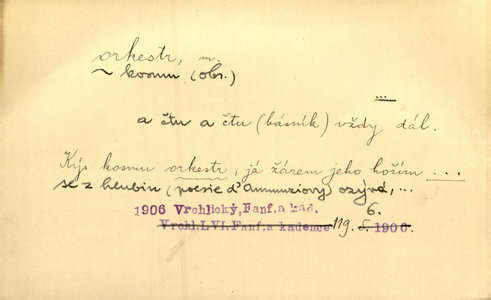 orkestr, m.
~ kosmu (obr.)
...
a čtu a čtu (básník) vždy dál.
Kýs kosmu orkestr, já žárem jeho hořím ...
se z hlubin (poesie d'Annunziovy) ozývá, ...
1906 Vrchlický, Fanf. a kad. 6.
Vrchl. I. VI. Fanf. a kadence 119 5. 1906.